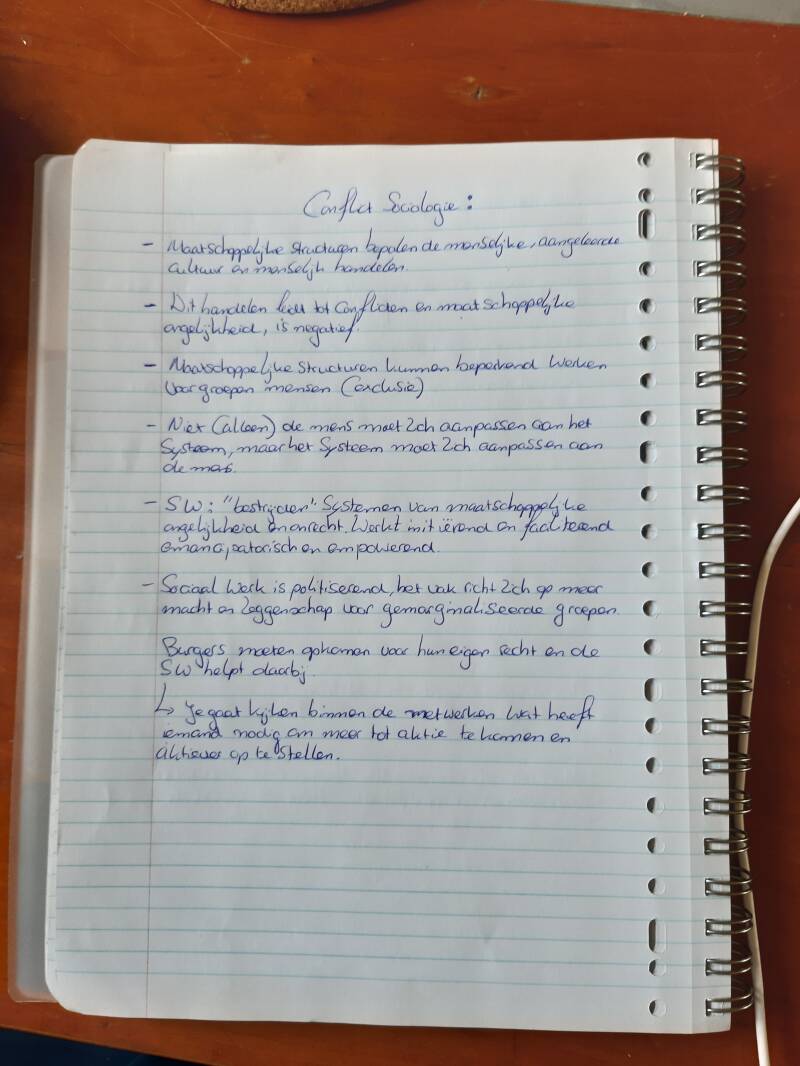 Conflict Sociologie:
- Maatschappelijke structuren bepalen de menselijke, aangeleerde
cultuur en menselijk handelen.
- Dit handelen leidt tot conflicten en maatschappelijke
ongelijkheid, is negatief.
- Maatschappelijke structuren kunnen beperkend werken
voor groepen mensen (exclusie)
- Niet (alleen) de mens moet zich aanpassen aan het
Systeem, maar het Systeem moet zich aanpassen aan
de mens.
- SW: "bestrijden" Systemen van maatschappelijke
ongelijkheid en onrecht. Werkt initiërend en faciliterend
emancipatorisch en empowerend.
- Sociaal Werk is politiserend, het vak richt zich op meer
macht en zeggenschap voor gemarginaliseerde groepen.
Burgers moeten opkomen voor hun eigen recht en de
SW helpt daarbij.
↳ Je gaat kijken binnen de netwerken wat heeft
iemand nodig om meer tot aktie te komen en
aktiever op te stellen.